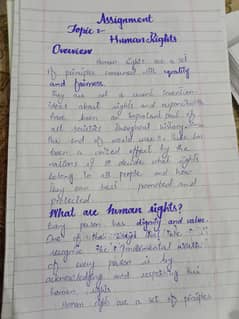 Assignment
Topic :-
Human Rights
Overview
Human rights are a set
of principles concerned with equality
and fairness.
They are not a recent invention
Ideas about rights and responsibility
have been an important part of
all societies throughout history
the end of world war
been a united effort by the
nations to decide what rights
belong to all people and how
they can best promoted and
protected.
What are human rights?
Every person has dignity and value.
One of the ways that we
recognise the fundamental worth
of every person is by
acknowledging and respecting their
human rights.
Human rights are a set of principles